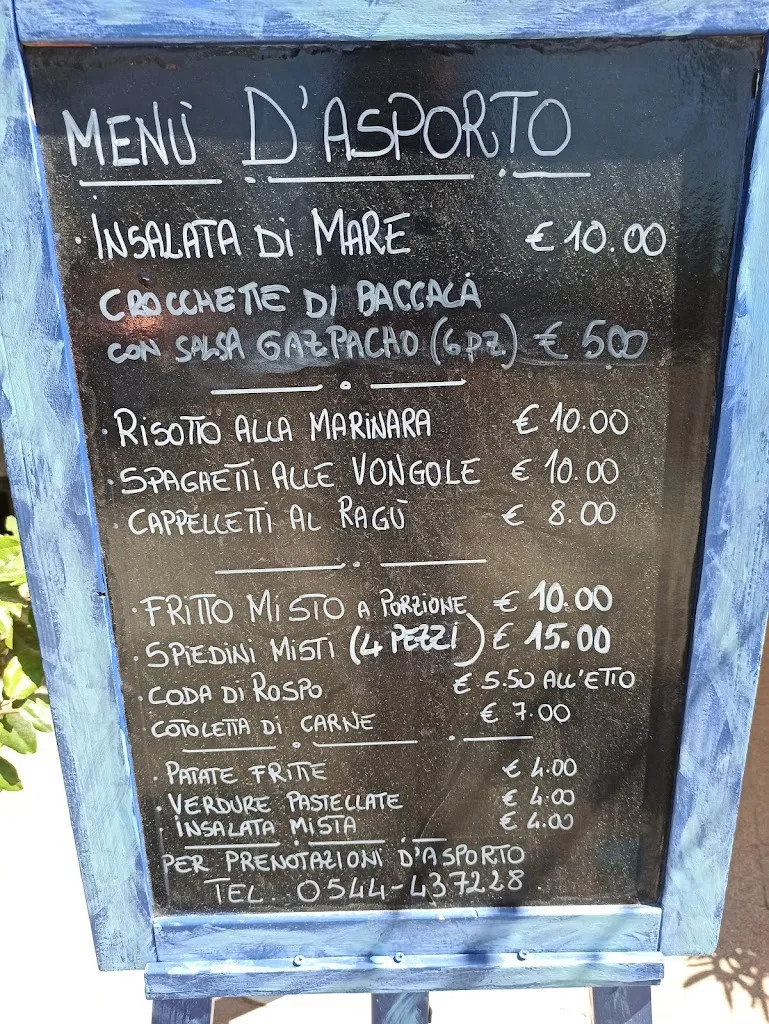 MENÙ D'ASPORTO
· INSALATA DI MARE € 10.00
CROCCHETTE DI BACCALÀ
CON SALSA GAZPACHO (6 PZ) € 5.00
· RISOTTO ALLA MARINARA € 10.00
· SPAGHETTI ALLE VONGOLE € 10.00
· CAPPELLETTI AL RAGÙ € 8.00
· FRITTO MISTO A PORZIONE € 10.00
· SPIEDINI MISTI (4 PEZZI) € 15.00
· CODA DI ROSPO € 5.50 ALL'ETTO
· COTOLETTA DI CARNE € 7.00
· PATATE FRITTE € 4.00
· VERDURE PASTELLATE € 4.00
· INSALATA MISTA € 4.00
PER PRENOTAZIONI D'ASPORTO
TEL. 0544-437228